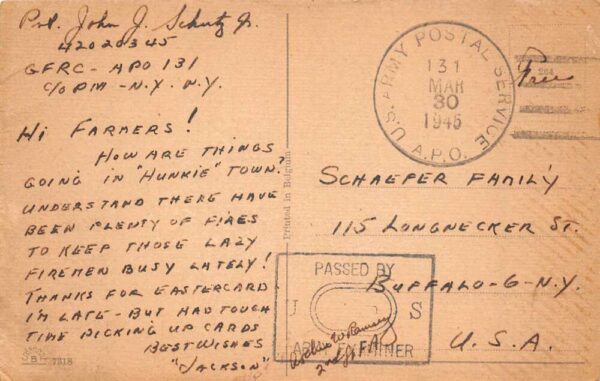 Pvt. John J. Schutz Jr.
42020345
GFRC - APO 131
C/O PM - N.Y. N.Y.
HI FARMERS!
HOW ARE THINGS
GOING IN "HUNKIE" TOWN?
UNDERSTAND THERE HAVE
BEEN PLENTY OF FIRES
TO KEEP THOSE LAZY
FIREMEN BUSY LATELY!
THANKS FOR EASTERCARD.
I'M LATE - BUT HAD TOUGH
TIME PICKING UP CARDS
BEST WISHES
"JACKSON"
B 7318
Printed in Belgium
U.S. ARMY POSTAL SERVICE
131
MAR
30
1945
A.P.O.
Free
SCHAEFER FAMILY
115 LONGNECKER ST.
BUFFALO-6-N.Y.
U.S.A.
PASSED BY
U S
ARMY EXAMINER
2nd Lt. FA